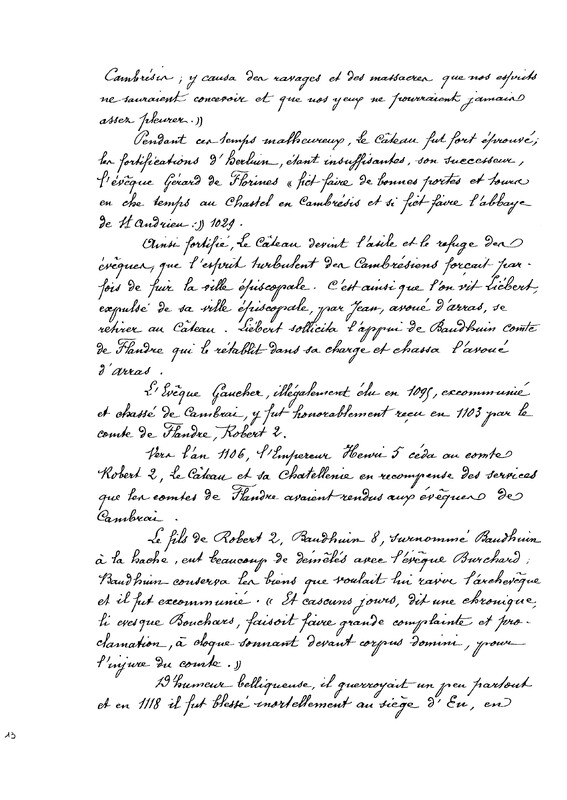 Cambrésis ; y causa des ravages et des massacres que nos esprits
ne sauraient concevoir et que nos yeux ne pourraient jamais
assez pleurer. »
Pendant ces temps malheureux, Le Câteau fut fort éprouvé ;
les fortifications d'Herluin, étant insuffisantes, son successeur,
l'évêque Gérard de Florines « fict faire de bonnes portes et tours
en che temps au Chastel en Cambrésis et si fict faire l'abbaye
de St Andrieu : » 1029.
Ainsi fortifié, Le Câteau devint l'asile et le refuge des
évêques, que l'esprit turbulent des Cambrésiens forçait par-
fois de fuir la ville épiscopale. C'est ainsi que l'on vit Liébert,
expulsé de sa ville épiscopale, par Jean, avoué d'arras, se
retirer au Câteau. Liébert sollicita l'appui de Baudhuin comte
de Flandre qui le rétablit dans sa charge et chassa l'avoué
d'arras.
L'Evêque Gaucher, illégalement élu en 1095, excommunié
et chassé de Cambrai, y fut honorablement reçu en 1103 par le
comte de Flandre, Robert 2.
Vers l'an 1106, l'Empereur Henri 5 céda au comte
Robert 2, Le Câteau et sa Chatellenie en recompense des services
que les comtes de Flandre avaient rendus aux évêques de
Cambrai.
Le fils de Robert 2, Baudhuin 8, surnommé Baudhuin
à la hache, eut beaucoup de démêlés avec l'évêque Burchard ;
Baudhuin conserva les biens que voulait lui ravir l'archevêque
et il fut excommunié. « Et cascuns jours, dit une chronique,
li evesque Bouchars, faisoit faire grande complainte et pro-
clamation, à cloque sonnant devant corpus domini, pour
l'injure du comte. »
D'humeur belliqueuse, il guerroyait un peu partout
et en 1118 il fut blessé mortellement au siège d'Eu, en
13